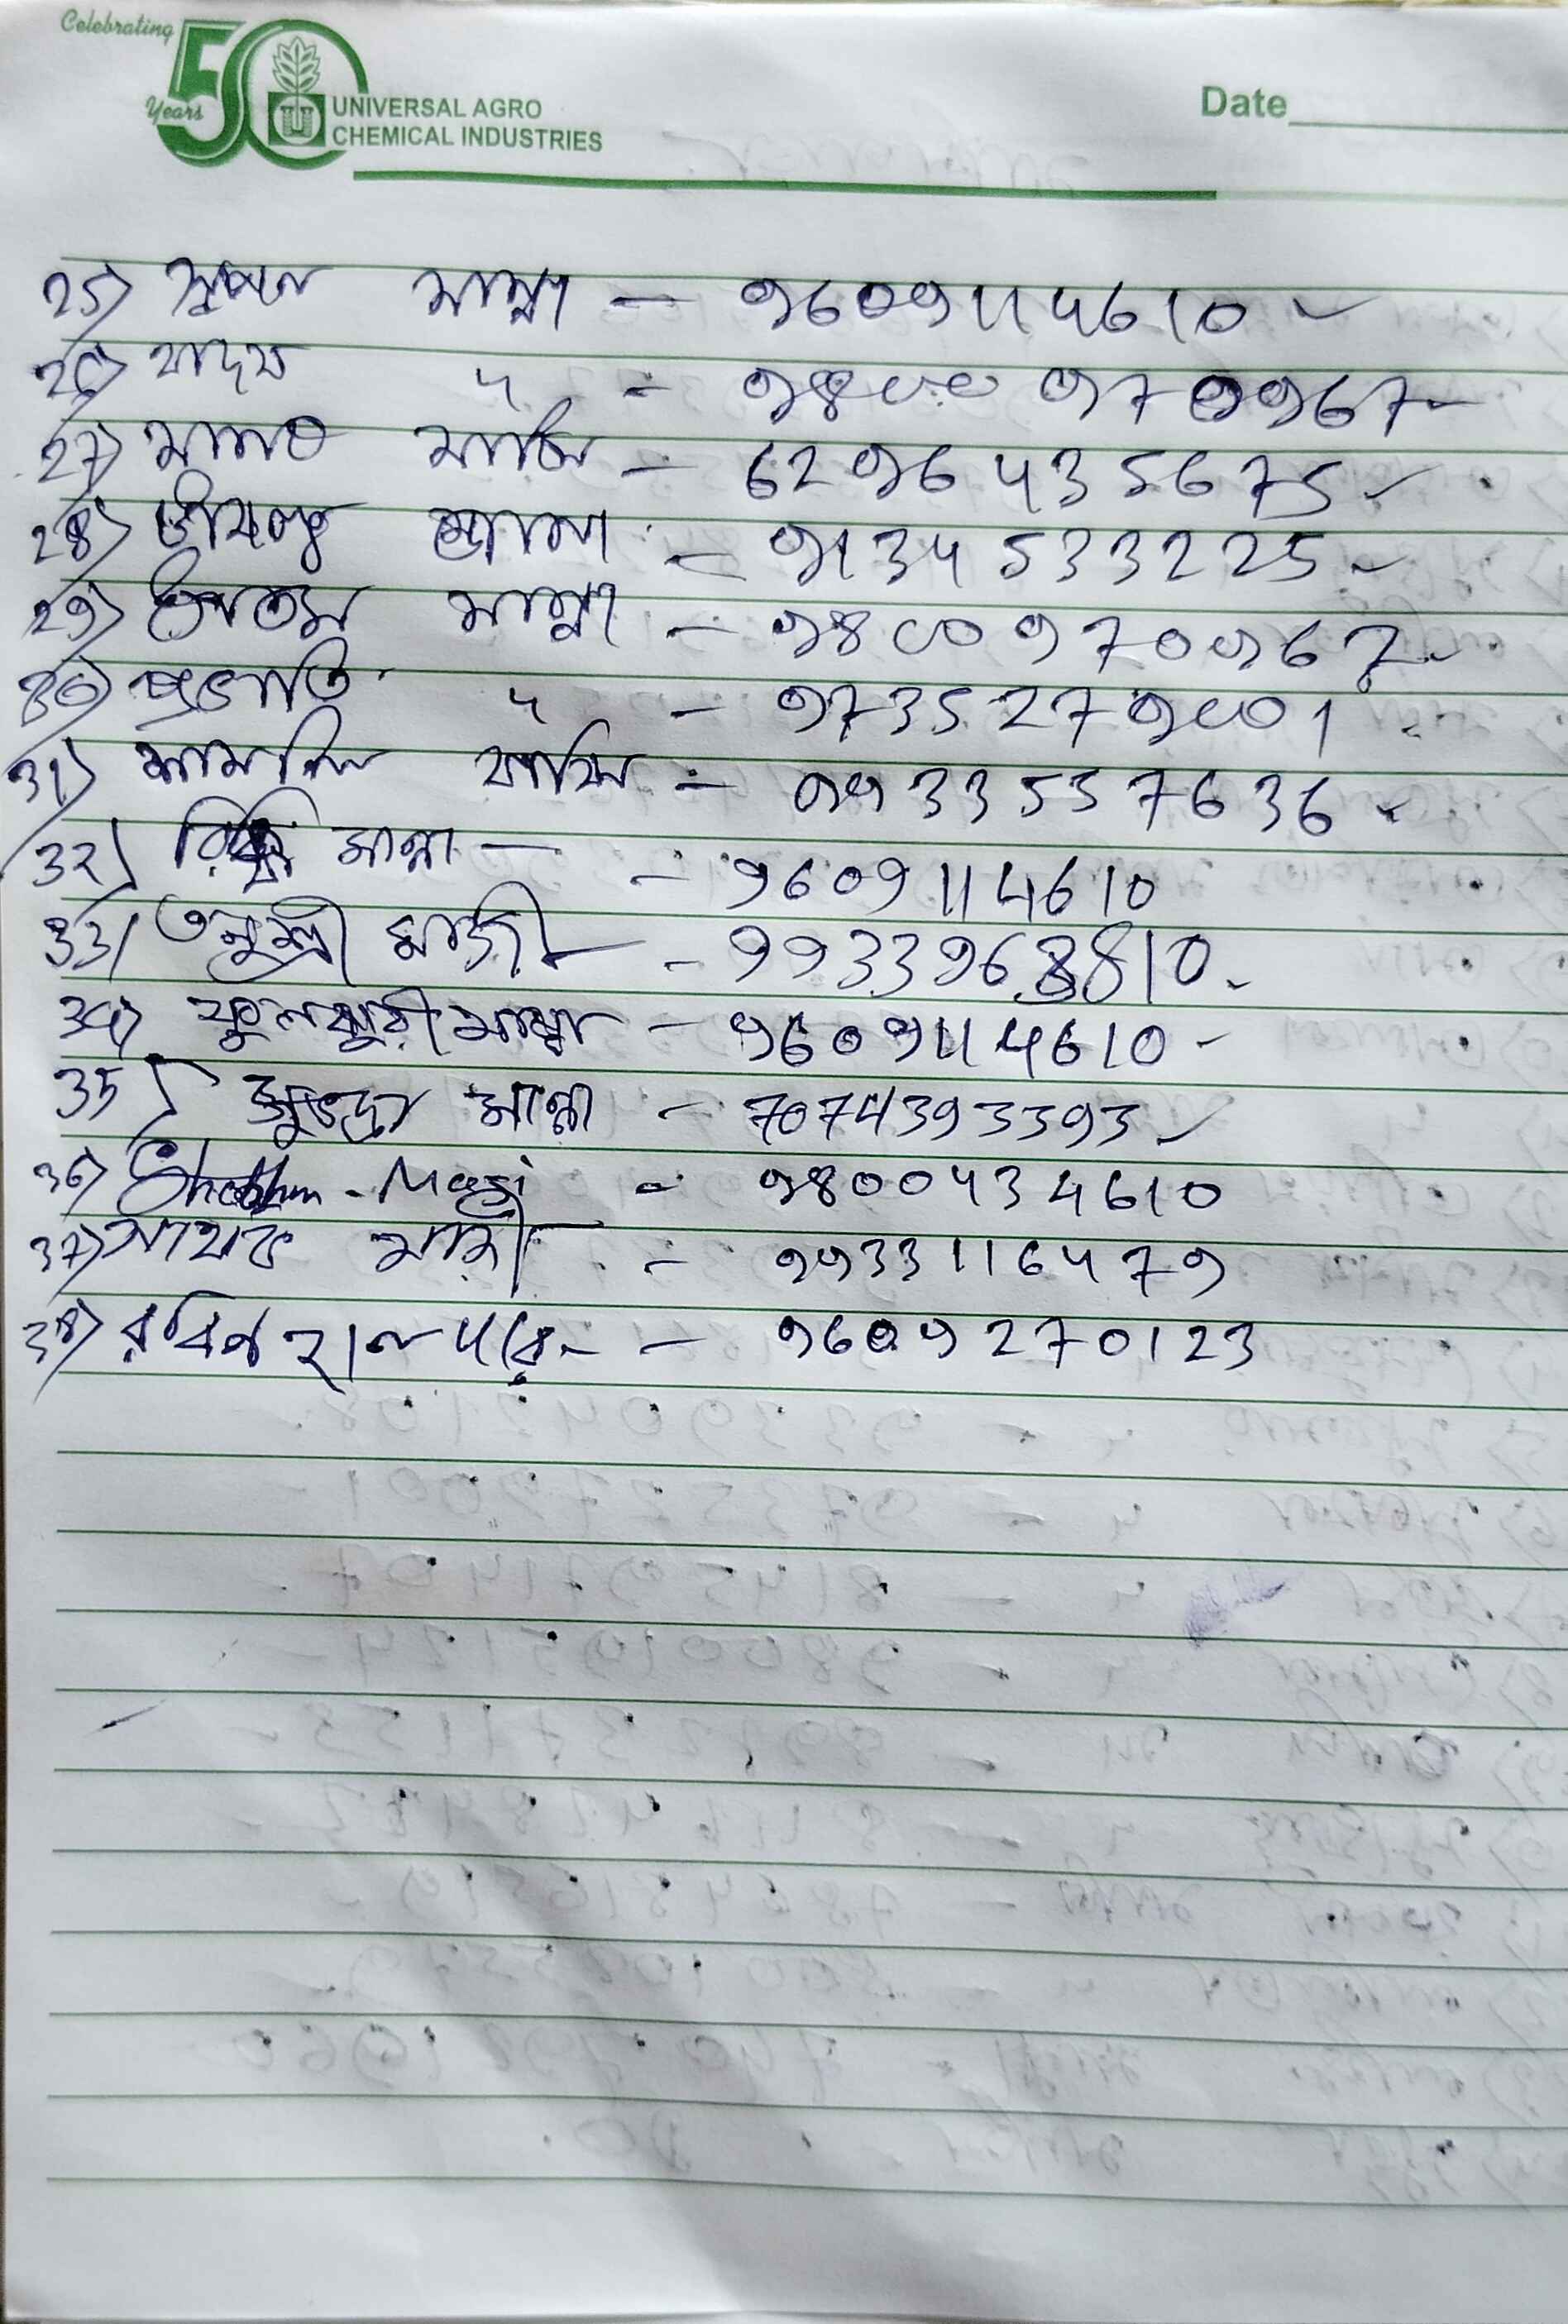 Celebrating
50 Years
UNIVERSAL AGRO
CHEMICAL INDUSTRIES
Date
25) মান্না - 9609114610
26) যাদব " - 9800970967
27) মানত মাঝি - 6296435675
28) - 9134533225
29) উত্তম মান্না - 9800970967
30) প্রভাতি " - 9735279001
31) মাঝি - 9933557636
32) মান্না - 9609114610
33) তনুশ্রী মাজী - 9933968810
34) ফুলঝুরী মান্না - 9609114610
35) সুভদ্রা মান্না - 7074393393
36) Magi - 9800434610
37) সাথক মাঝী - 9933116479
38) রবিন হালদার - 9609270123